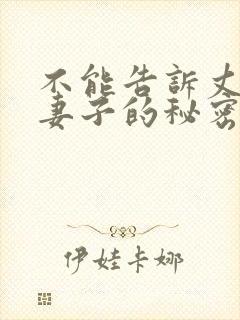 不能告訴
妻子的秘密
伊娃卡娜